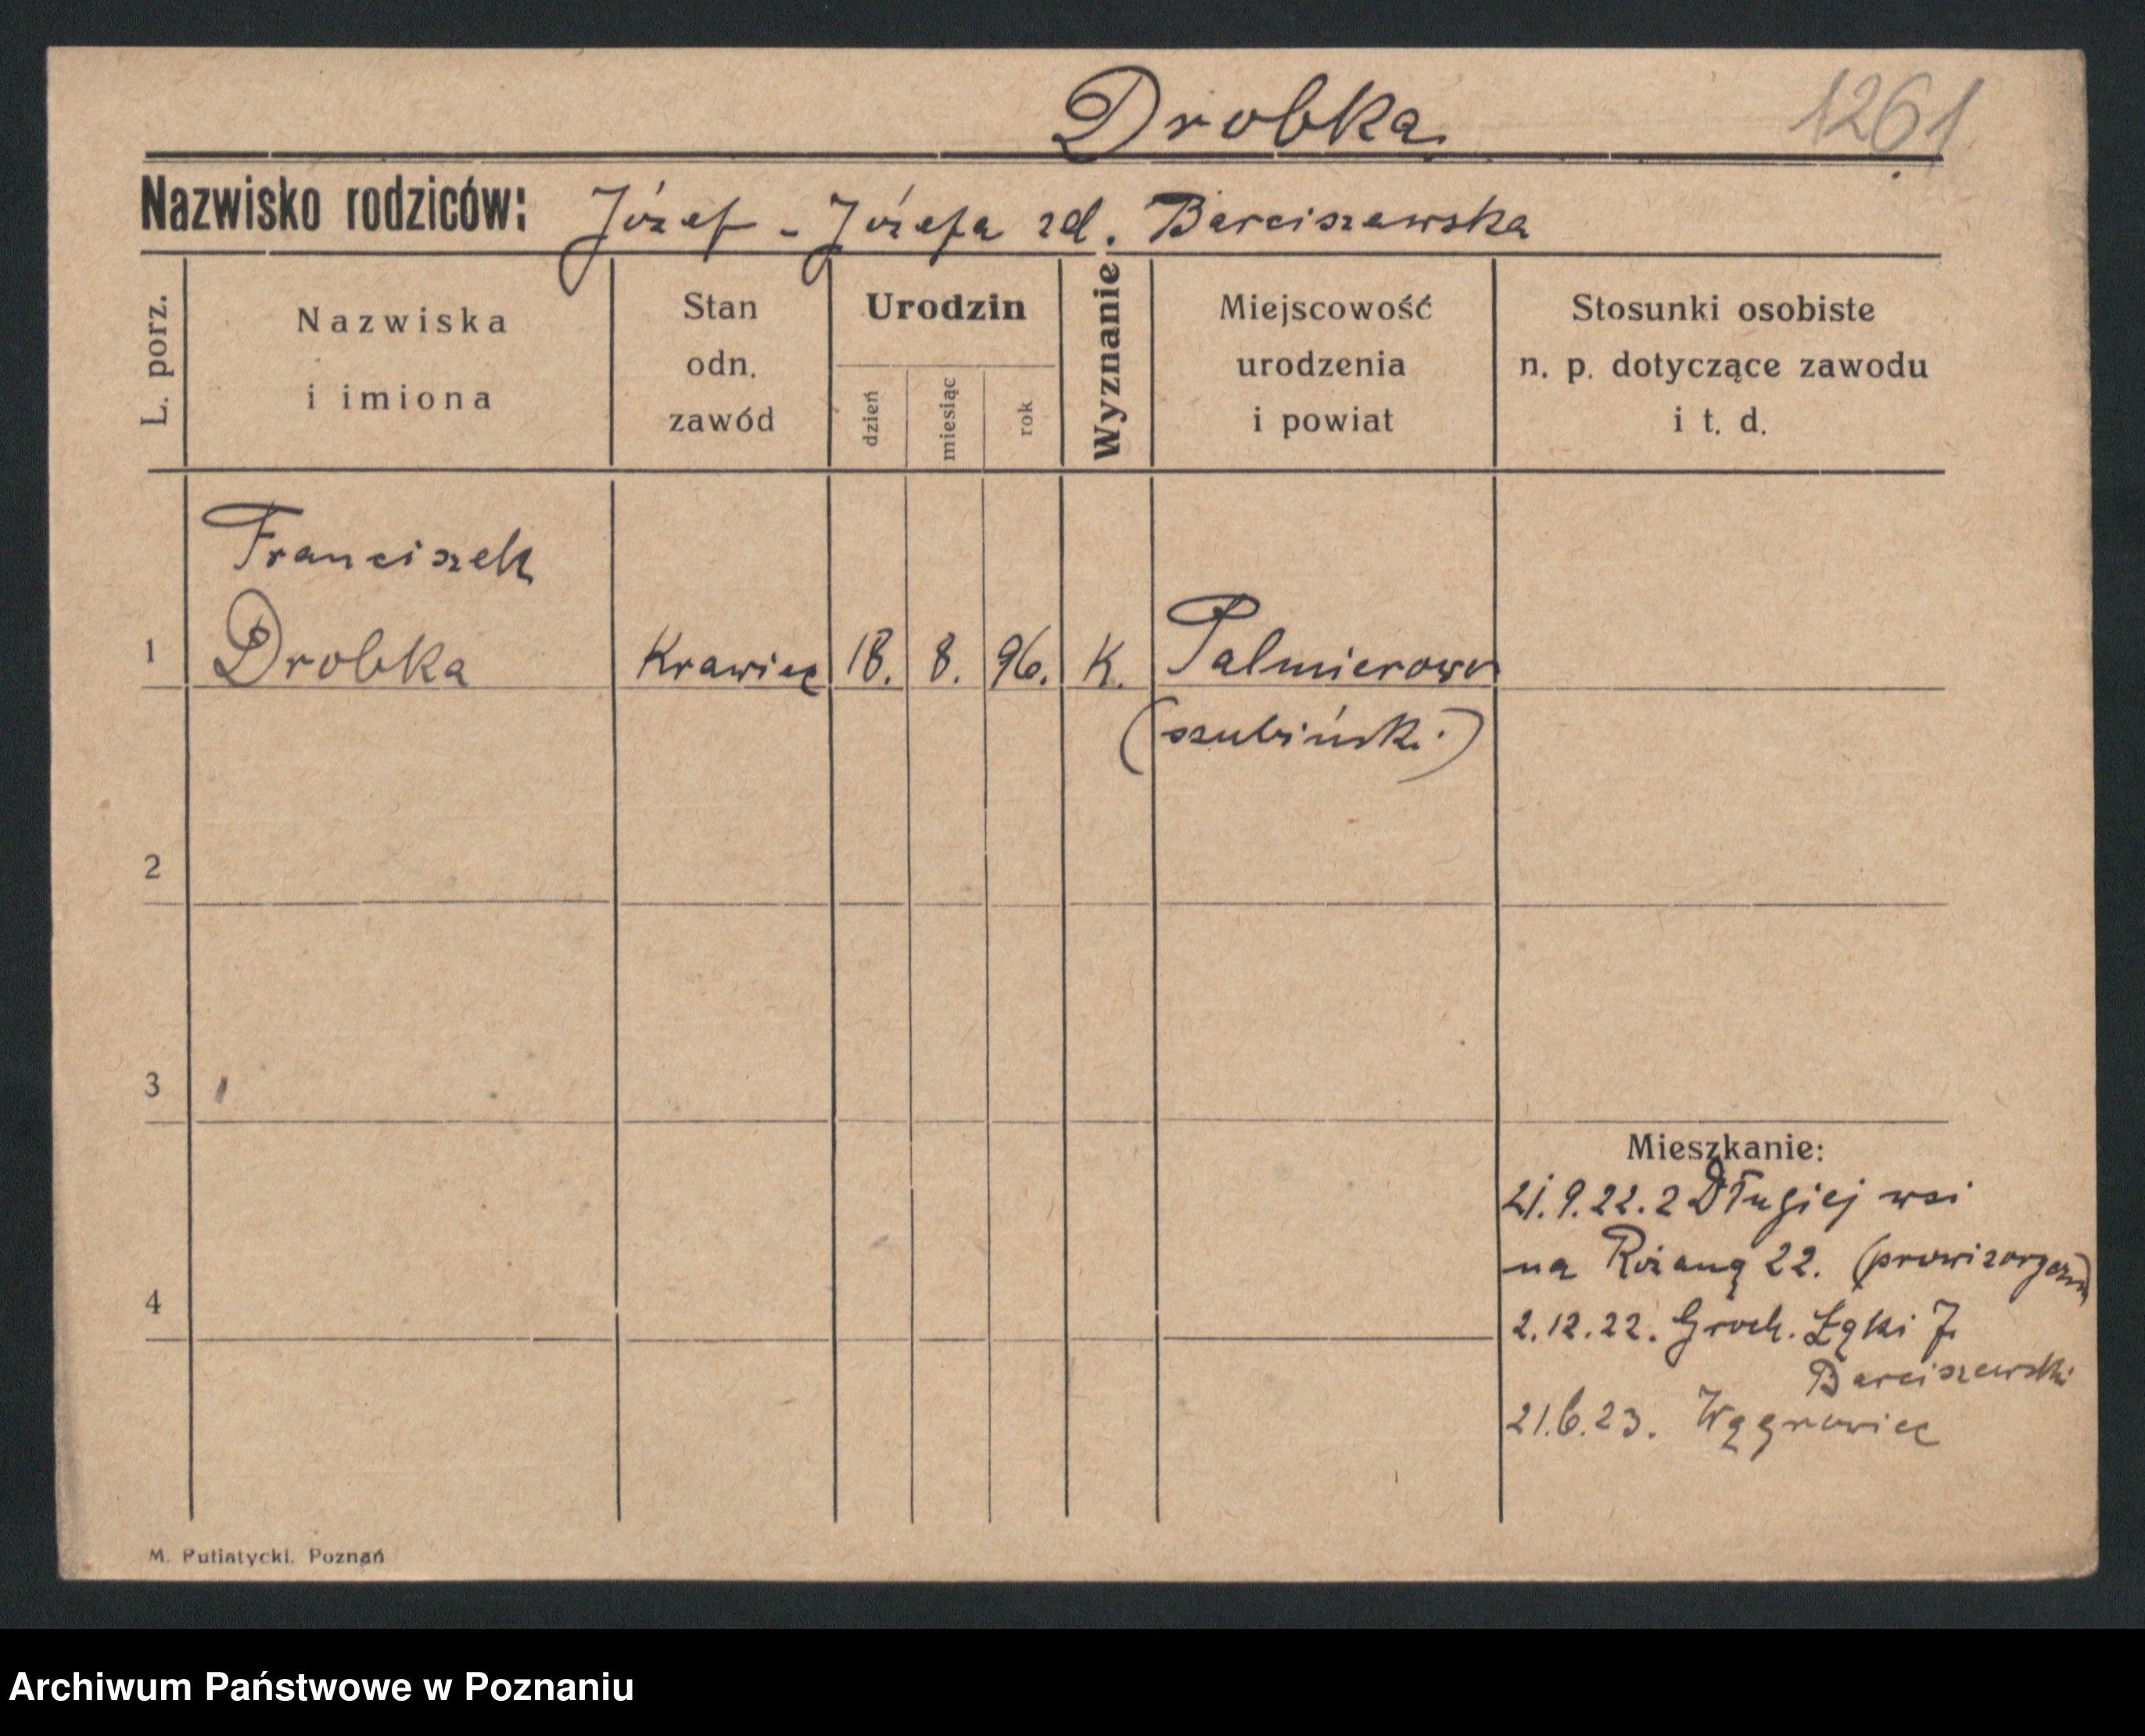 Drobka
1261
Nazwisko rodziców: Józef - Józefa zd. Barciszewska
L. porz.
Nazwiska
i imiona
Stan
odn.
zawód
Urodzin
dzień
miesiąc
rok
Wyznanie
Miejscowość
urodzenia
i powiat
Stosunki osobiste
n. p. dotyczące zawodu
i t. d.
Franciszek
1 Drobka Krawiec 18. 8. 96. K. Palmierowo
(szubiński)
2
3
4
Mieszkanie:
21.9.22. z Długiej wsi
na Różaną 22. (prowizorycznie)
2.12.22. Groch. Łąki 7
Barciszewski
21.6.23. Wągrowiec
M. Putiatycki. Poznań
Archiwum Państwowe w Poznaniu